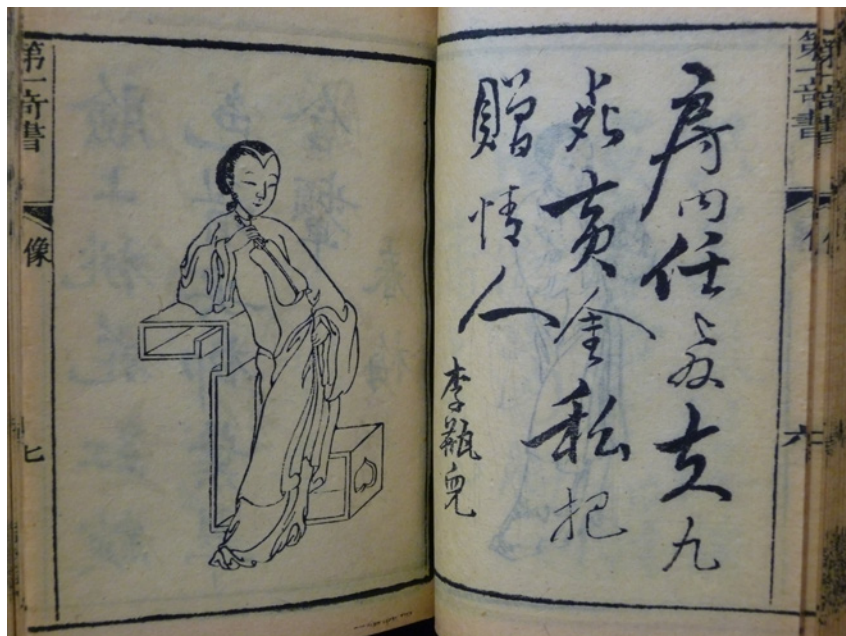 第一奇書
像
六
房内任夫九
死黄金私把
贈情人
李瓶兒
第一奇書
像
七